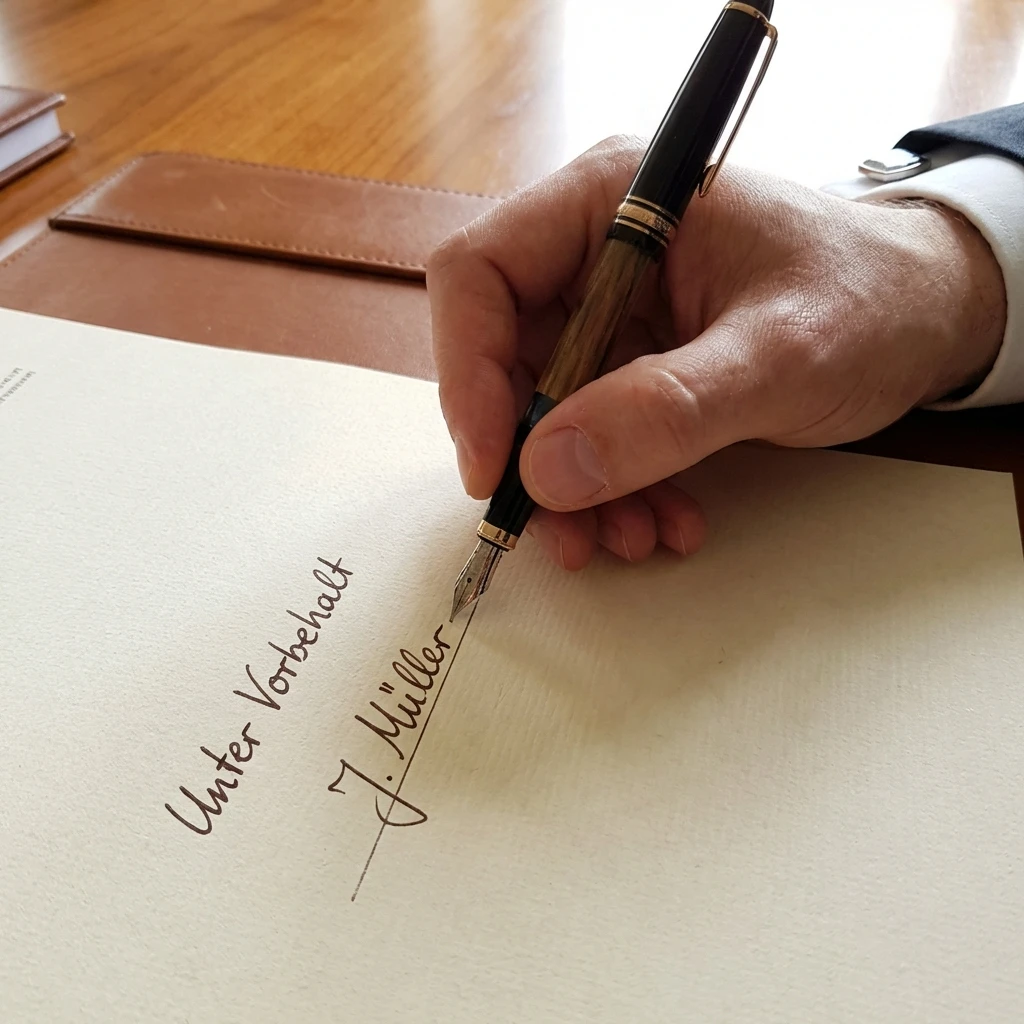 Unter Vorbehalt
J. Müller